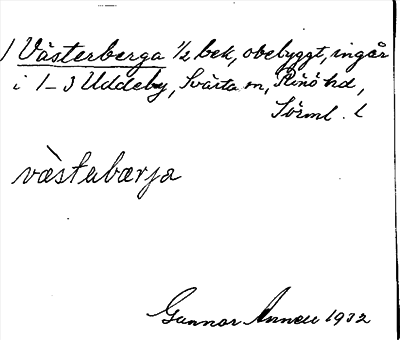 1 Västerberga 1/2 bek, obebyggt, ingår
i 1-3 Uddeby, Svärta sn, Rönö hd,
Sörml. L
vàstabærja
Gunnar Annell 1932